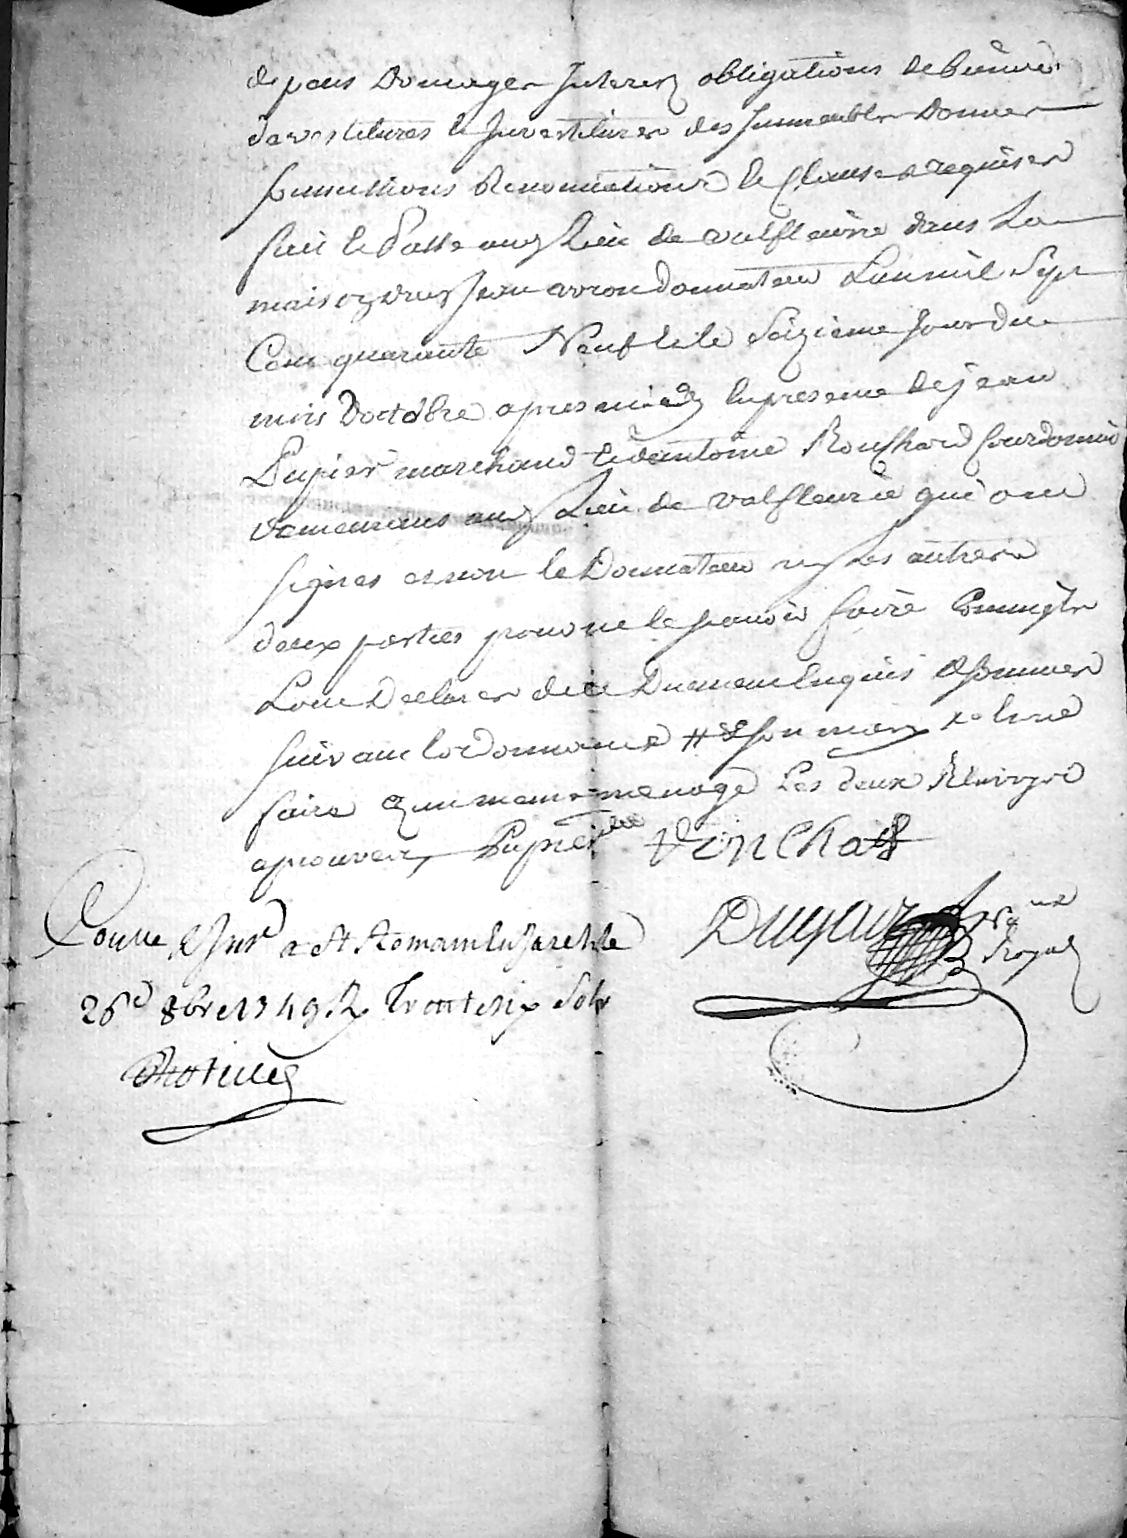 depans Domages Interez obligations de biens
devestitures & Investitures des Immeubles Donnes
soumissions Renonciations & Clauses requises
fait & Passé audz Lieu de valfleurie dans La
maison dudz Jean donnateur L'an mil Sept
Cent quarante Neuf & le Seizieme Jour du
mois Doctobre apres midy En presence de jean
Pupier marchand & d'antoine Courdonnie
demeurans audz Lieu de valfleurie qui ont
signes et non le Donnateur ny Les autres
deux parties pour ne le scavoir faire Comme ils
L'ont Declares de ce Duement Enquis & sommes
suivant lordonnance # & son mary
faire qun meme menage Les deux Renvoys
aprouvez Pupier
Dugas No.re Royal
Conlle & Ins.é a St Romain En Jarest le
26e 8bre 1749 R. Trente six sols